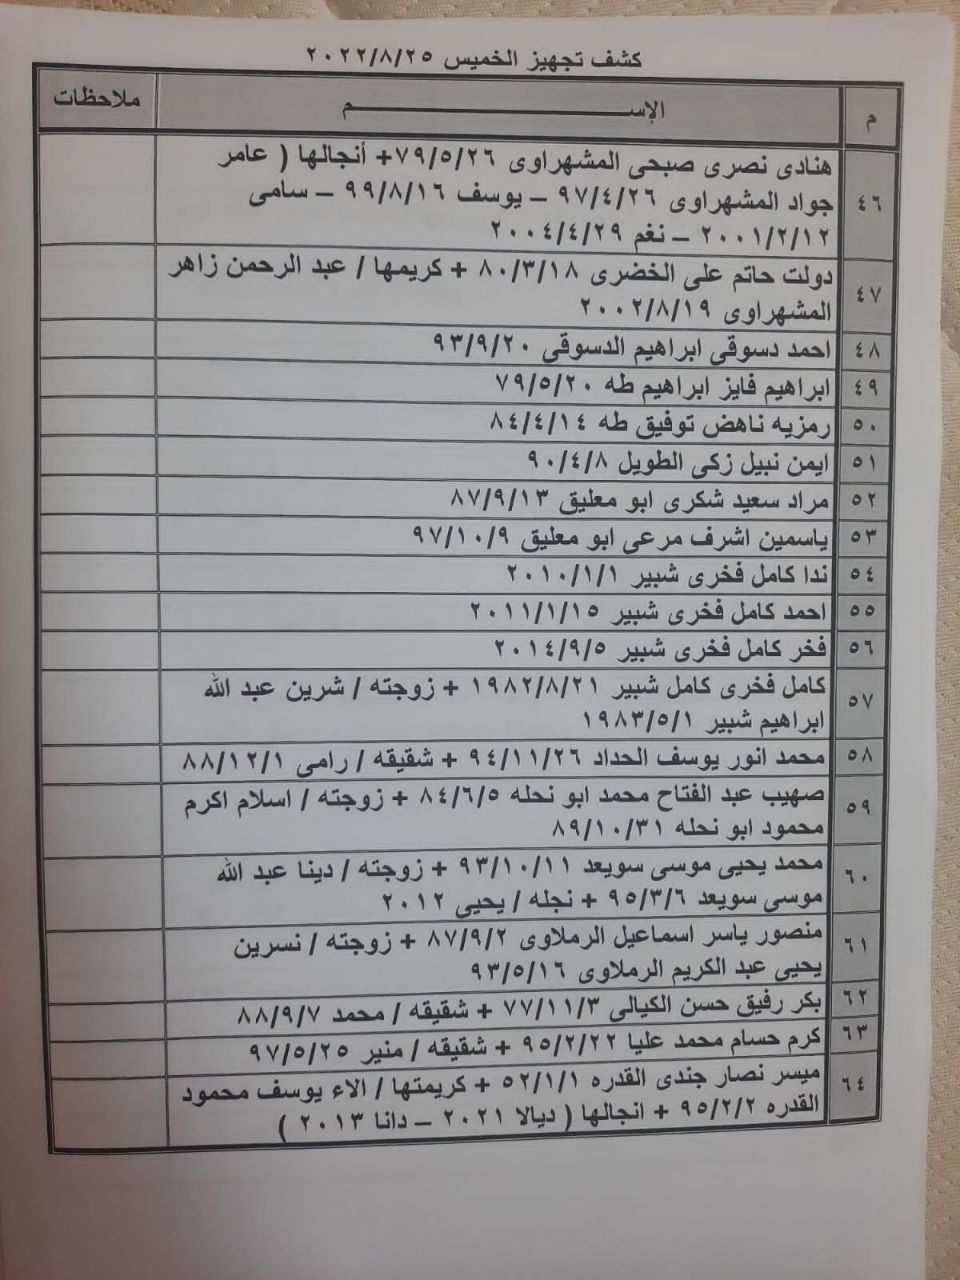 كشف تجهيز الخميس ٢٠٢٢/٨/٢٥
م الإســـــــــم ملاحظات
هنادى نصرى صبحى المشهراوى ٧٩/٥/٢٦+ أنجالها ( عامر
٤٦ جواد المشهراوى ٩٧/٤/٢٦ – يوسف ٩٩/٨/١٦ – سامى
٢٠٠١/٢/١٢ – نغم ٢٠٠٤/٤/٢٩
٤٧ دولت حاتم على الخضرى ٨٠/٣/١٨ + كريمها / عبد الرحمن زاهر
المشهراوى ٢٠٠٢/٨/١٩
٤٨ احمد دسوقى ابراهيم الدسوقى ٩٣/٩/٢٠
٤٩ ابراهيم فايز ابراهيم طه ٧٩/٥/٢٠
٥٠ رمزيه ناهض توفيق طه ٨٤/٤/١٤
٥١ ايمن نبيل زكى الطويل ٩٠/٤/٨
٥٢ مراد سعيد شكرى ابو معليق ٨٧/٩/١٣
٥٣ ياسمين اشرف مرعى ابو معليق ٩٧/١٠/٩
٥٤ ندا كامل فخرى شبير ٢٠١٠/١/١
٥٥ احمد كامل فخرى شبير ٢٠١١/١/١٥
٥٦ فخر كامل فخرى شبير ٢٠١٤/٩/٥
٥٧ كامل فخرى كامل شبير ١٩٨٢/٨/٢١ + زوجته / شرين عبد الله
ابراهيم شبير ١٩٨٣/٥/١
٥٨ محمد انور يوسف الحداد ٩٤/١١/٢٦ + شقيقه / رامى ٨٨/١٢/١
٥٩ صهيب عبد الفتاح محمد ابو نحله ٨٤/٦/٥ + زوجته / اسلام اكرم
محمود ابو نحله ٨٩/١٠/٣١
٦٠ محمد يحيى موسى سويعد ٩٣/١٠/١١ + زوجته / دينا عبد الله
موسى سويعد ٩٥/٣/٦ + نجله / يحيى ٢٠١٢
٦١ منصور ياسر اسماعيل الرملاوى ٨٧/٩/٢ + زوجته / نسرين
يحيى عبد الكريم الرملاوى ٩٣/٥/١٦
٦٢ بكر رفيق حسن الكيالى ٧٧/١١/٣ + شقيقه / محمد ٨٨/٩/٧
٦٣ كرم حسام محمد عليا ٩٥/٢/٢٢ + شقيقه / منير ٩٧/٥/٢٥
٦٤ ميسر نصار جندى القدره ٥٢/١/١ + كريمتها / الاء يوسف محمود
القدره ٩٥/٢/٢ + انجالها ( ديالا ٢٠٢١ – دانا ٢٠١٣ )